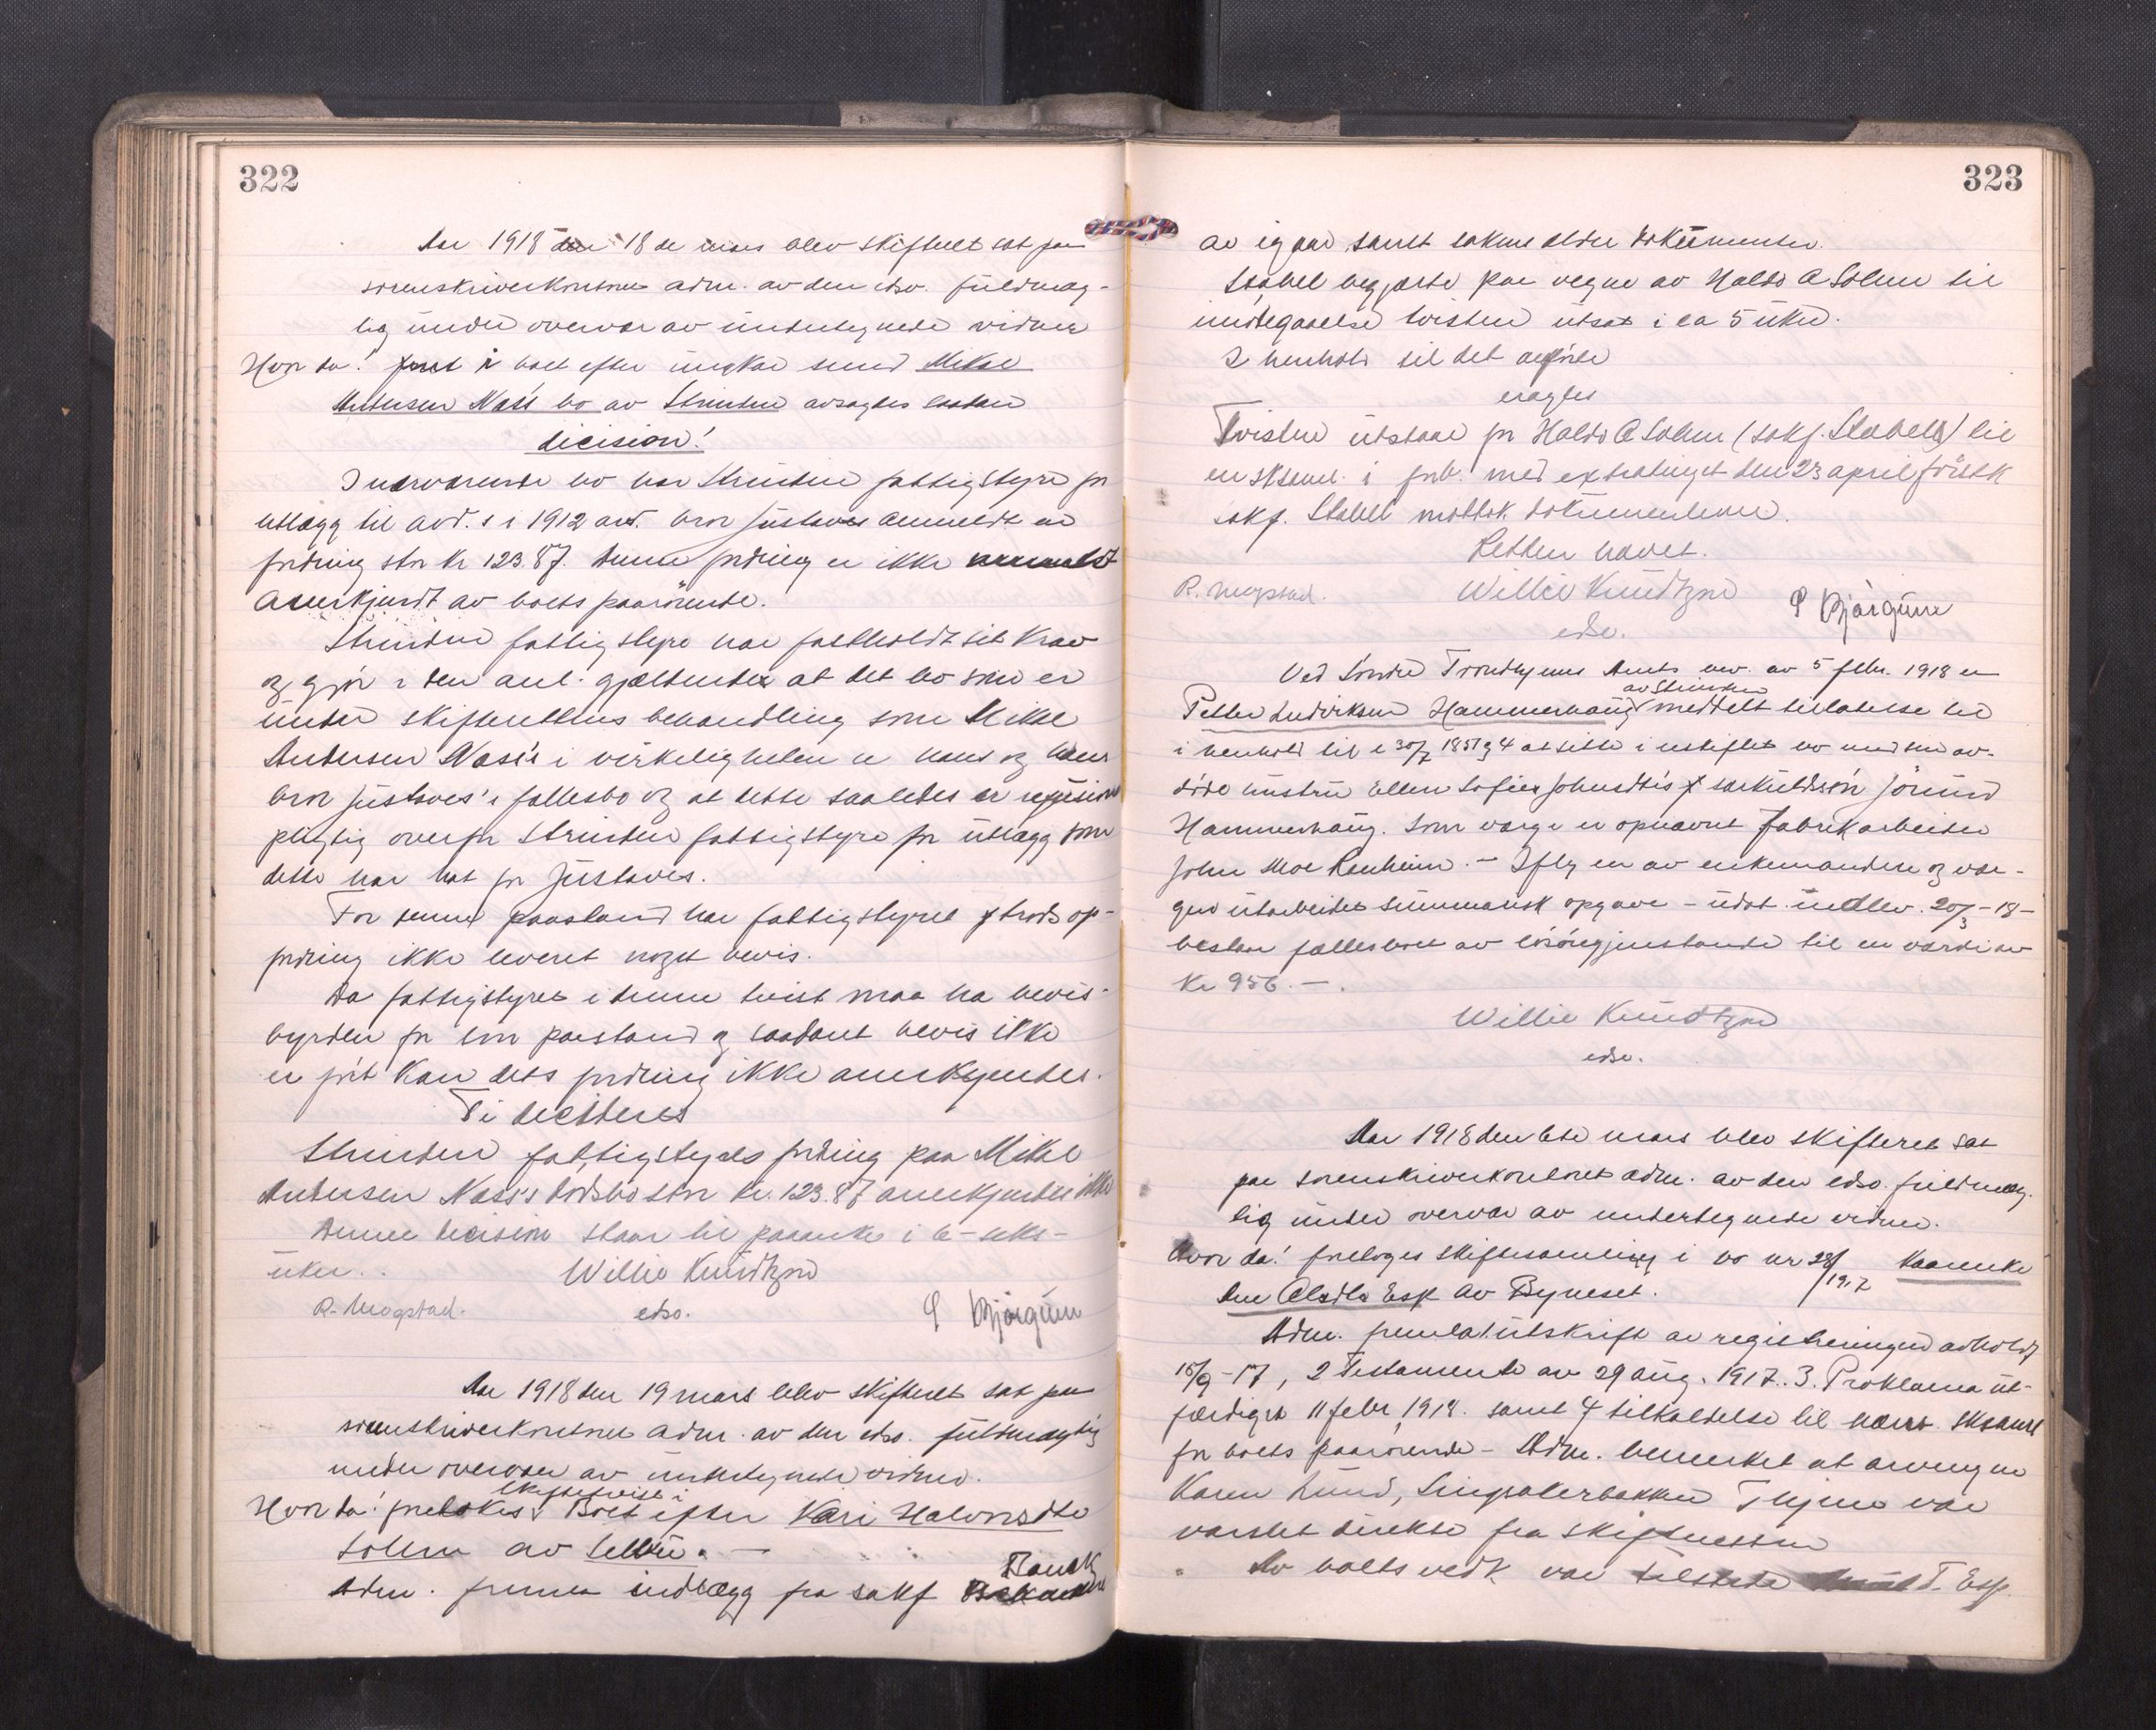 322
Aar 1918 den 18 de mars blev skifteret sat paa
sorenskriverkontoret adm. av den edsv. fuldmæg-
tig under overvær av undertegnede vidner
Hvor da! foret i boet efter ungkar smed Mikal
Andersen Næss bo av Strinden avsagdes saadan
decision!
I nærværende bo har Strinden fattigstyre for
utlægg til avd.s i 1912 avd. bror Gustaves anmeldt en
fordring stor kr 123.87. Denne fordring er ikke
anerkjendt av boets paarörende.
Strinden fattigstyre har fastholdt sit krav
og gjör i den anl. gjældende at det bo som er
under skifterettens behandling som Mikal
Andersen Næss's i virkeligheten er hans og hans
bror Gustaves's fællesbo og at dette saaledes er refusions
pligtig overfor Strinden fattigstyre for utlægg som
dette har hat for Gustaves.
For denne paastand har fattigstyret trods op-
fordring ikke leveret noget bevis.
Da fattigstyret i denne tvist maa ha bevis-
byrden for sin paastand og saadant bevis ikke
er fört kan dets fordring ikke anerkjendes.
Ti decideres
Strinden fattigstyres fordring paa Mikal
Andersen Næss's dödsbo stor kr. 123.87 anerkjendes ikke
Denne decision staar til paaanke i 6 - seks -
uker.
Willie Knudtzon
R. Mogstad.
edsv.
P Bjørgum
Aar 1918 den 19 mars blev skifteret sat paa
sorenskriverkontoret adm. av den edsv. fuldmægtig
under overvær av undertegnede vidner.
skiftetvist i
Hvor da! foretokes Boet efter Kari Halvorsdtr
Solem av Selbu. -
Bansk
Adm. fremla indlægg fra sakf
323
av igaar samt sakens ældre dokumenter.
Stabel begjærte paa vegne av Haldo A Solem til
imötegaaelse tvisten utsat i ca 5 uker.
I henhold til det anförte
eragtes
Tvisten utstaar for Haldo A Solem (sakf. Stabell) til
en sksaml. i forb. med extratinget den 23 april förstk
sakf. Stabell mottok dokumenterne.
Retten hævet.
R. Mogstad.
Willie Knudtzon
P Bjørgum
edsv.
Ved Söndre Trondhjems Amts bev. av 5 febr. 1918 er
av Strinden
Petter Ludviksen Hammerhaug meddelt tillatelse til
i henhold til l 30/7 1851 § 4 at sitte i uskiftet bo med sin av-
döde hustru Ellen Sofies Johnsdtr's særkuldsön Jörund
Hammerhaug. Som værge er opnævnt fabrikarbeider
John Moe Ranheim. - Ifly en av enkemanden og vær-
gen utarbeidet summarisk opgave - udat. indlev. 20/3 - 18 -
bestaar fællesboet av lösöregjenstande til en værdi av
Kr 956. -.
Willie Knudtzon
edsv.
Aar 1918 den 6te mars blev skifteret sat
paa sorenskriverkontoret adm. av den edsv. fuldmæg-
tig under overvær av undertegnede vidner.
Hvor da! foretoges skiftesamling i bo nr 28/1917 Kaarenke
Ane Olsdtr Esp av Byneset.
Adm. fremla 1. utskrift av registreringen avholdt
15/9 - 17, 2 Testamente av 29 aug. 1917. 3. Proklama ut-
færdiget 11 febr 1918. samt 4 tilkaldelse til nærv. sksaml
for boets paarörende - Adm. bemerket at arvingen
Karen Lund, Singsakerbakken Thjem var
varslet direkte fra skifteretten
Av boets vedk var tilstede T. Esp.